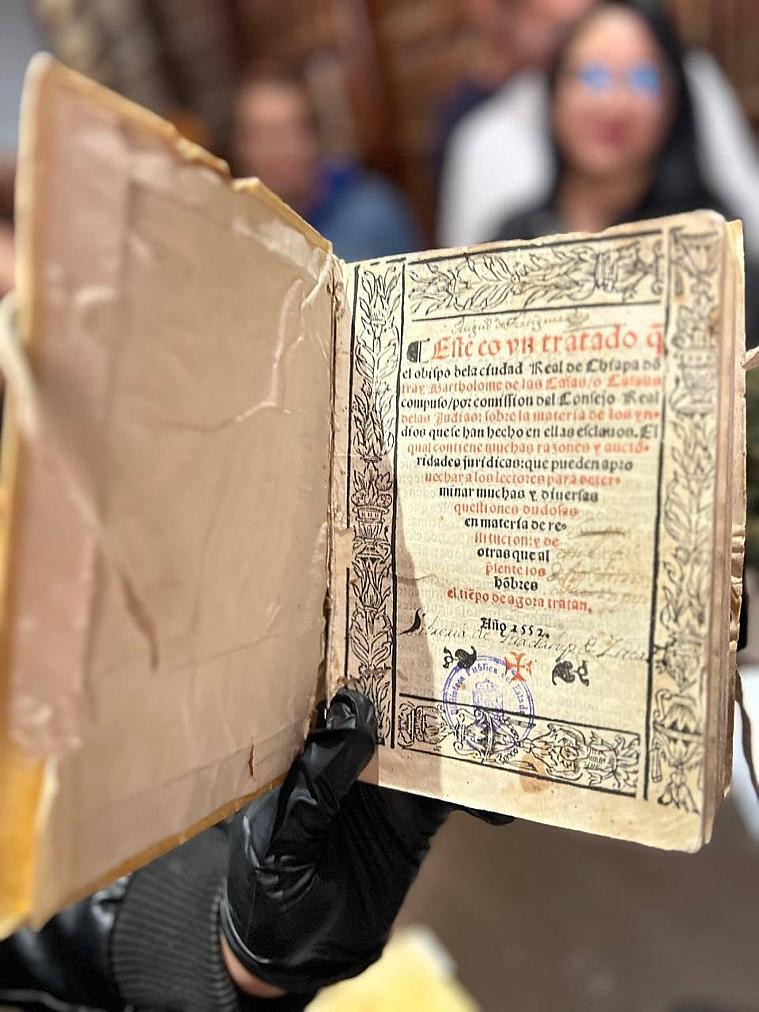 Este es vn tratado q̃
el obispo dela ciudad Real de Chiapa dõ
fray Bartholome de las Casas/o Casaus
compuso/por comission del Consejo Real
delas Indias: sobre la materia de los yn-
dios que se han hecho en ellas esclauos. El
qual contiene muchas razones y aucto-
ridades juridicas: que pueden apro
uechar a los lectores para deter-
minar muchas y diuersas
questiones dudosas
en materia de re-
stitucion: y de
otras que al
p̃sente los
hõbres
el tiẽpo de agora tratan.
Año 1552.
de Guadalupe
Publica del Estado